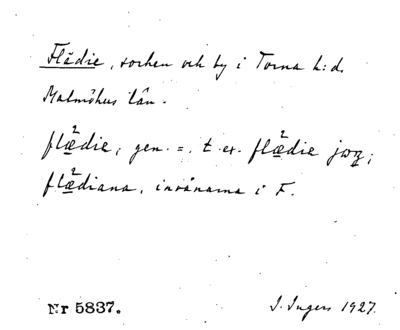 Flädie, socken och by i Torna h:d.
Malmöhus län.
flædie, gen. =, t. ex. flædie
flædiana, invånarna i F.
Nr 5837.
I. Ingers 1927.